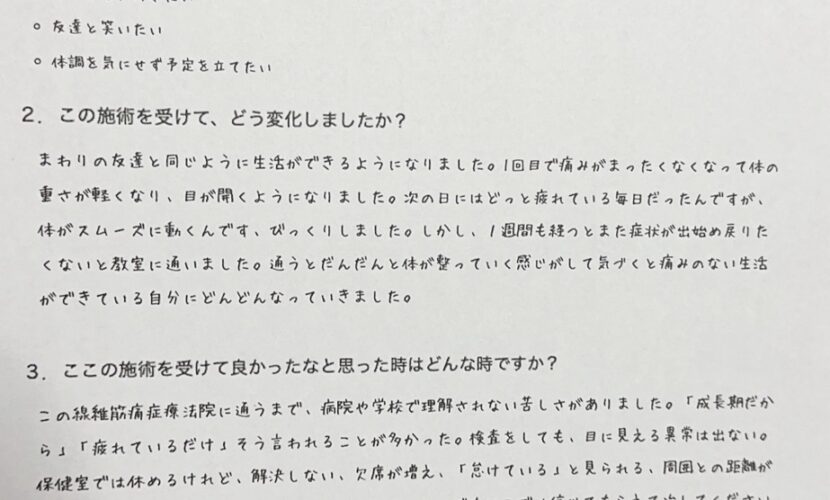 ○ 友達と笑いたい
○ 体調を気にせず予定を立てたい
2．この施術を受けて、どう変化しましたか？
まわりの友達と同じように生活ができるようになりました。1回目で痛みがまったくなくなって体の
重さが軽くなり、目が開くようになりました。次の日にはどっと疲れている毎日だったんですが、
体がスムーズに動くんです、びっくりしました。しかし、1週間も経つとまた症状が出始め戻りた
くないと教室に通いました。通うとだんだんと体が整っていく感じがして気づくと痛みのない生活
ができている自分にどんどんなっていきました。
3．ここの施術を受けて良かったなと思った時はどんな時ですか？
この線維筋痛症療法院に通うまで、病院や学校で理解されない苦しさがありました。「成長期だか
ら」「疲れているだけ」そう言われることが多かった。検査をしても、目に見える異常は出ない。
保健室では休めるけれど、解決しない、欠席が増え、「怠けている」と見られる、周囲との距離が